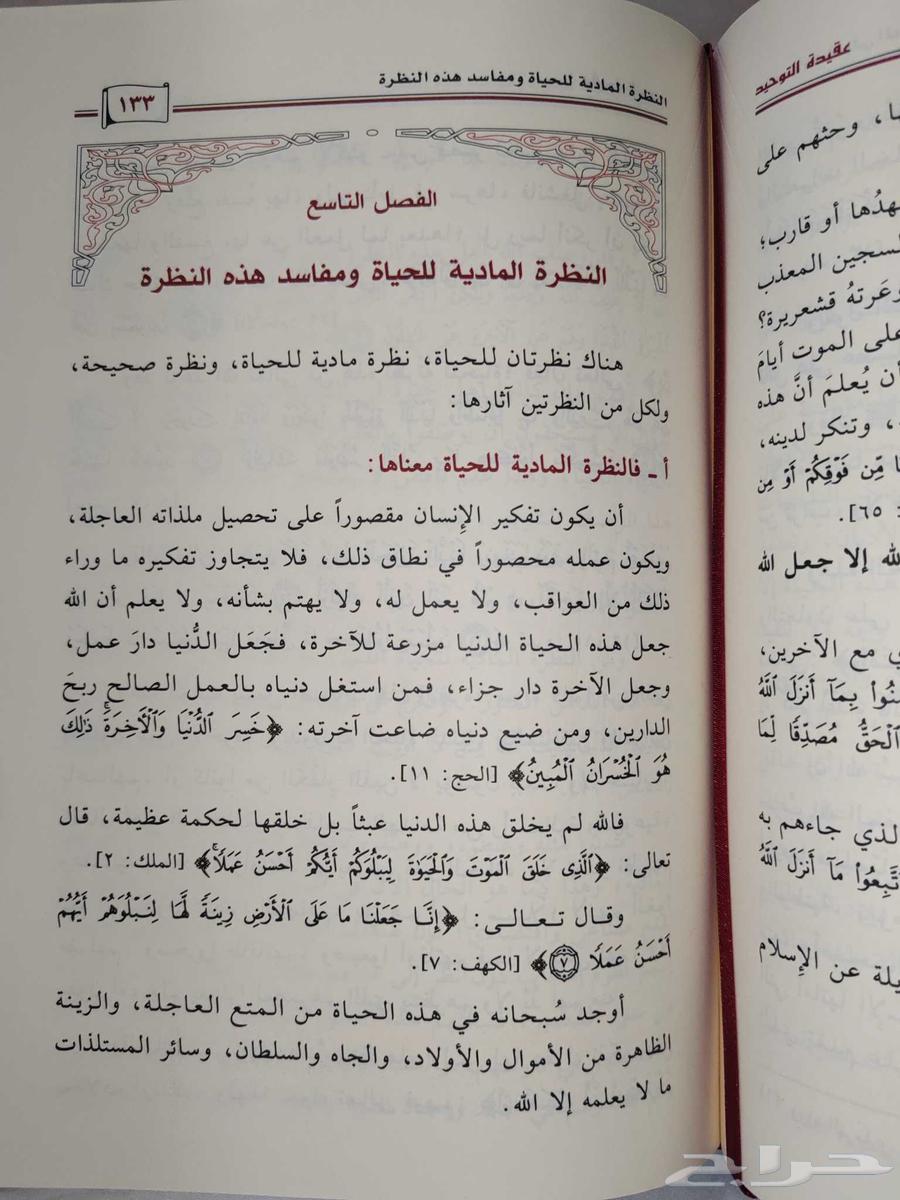 عقيدة التوحيد
ا، وحثهم على
هدُها أو قارب؛
لسجين المعذب
وعَرتهُ قشعريرة؟
على الموت أيامَ
أن يُعلمَ أنَّ هذه
، وتنكر لدينه،
مِّن فَوْقِكُمْ أَوْ مِن
: ٦٥].
لله إلا جعل الله
ي مع الآخرين،
بِمَآ أَنزَلَ ٱللَّهُ
ٱلْحَقُّ مُصَدِّقًا لِّمَا
لذي جاءهم به
ٱتَّبِعُوا۟ مَآ أَنزَلَ ٱللَّهُ
يلة عن الإسلام
النظرة المادية للحياة ومفاسد هذه النظرة
١٣٣
الفصل التاسع
النظرة المادية للحياة ومفاسد هذه النظرة
هناك نظرتان للحياة، نظرة مادية للحياة، ونظرة صحيحة،
ولكل من النظرتين آثارها:
أ ـ فالنظرة المادية للحياة معناها:
أن يكون تفكير الإِنسان مقصوراً على تحصيل ملذاته العاجلة،
ويكون عمله محصوراً في نطاق ذلك، فلا يتجاوز تفكيره ما وراء
ذلك من العواقب، ولا يعمل له، ولا يهتم بشأنه، ولا يعلم أن الله
جعل هذه الحياة الدنيا مزرعة للآخرة، فجَعَل الدُّنيا دارَ عمل،
وجعل الآخرة دار جزاء، فمن استغل دنياه بالعمل الصالح ربحَ
الدارين، ومن ضيع دنياه ضاعت آخرته: ﴿خَسِرَ ٱلدُّنْيَا وَٱلْأَخِرَةَۚ ذَٰلِكَ
هُوَ ٱلْخُسْرَانُ ٱلْمُبِينُ﴾ [الحج: ١١].
فالله لم يخلق هذه الدنيا عبثاً بل خلقها لحكمة عظيمة، قال
تعالى: ﴿ٱلَّذِى خَلَقَ ٱلْمَوْتَ وَٱلْحَيَوٰةَ لِيَبْلُوَكُمْ أَيُّكُمْ أَحْسَنُ عَمَلًاۚ﴾ [الملك: ٢].
وقـال تـعـالـى: ﴿إِنَّا جَعَلْنَا مَا عَلَى ٱلْأَرْضِ زِينَةً لَّهَا لِنَبْلُوَهُمْ أَيُّهُمْ
أَحْسَنُ عَمَلًا ٧﴾ [الكهف: ٧].
أوجد سُبحانه في هذه الحياة من المتع العاجلة، والزينة
الظاهرة من الأموال والأولاد، والجاه والسلطان، وسائر المستلذات
ما لا يعلمه إلا الله.
حراج